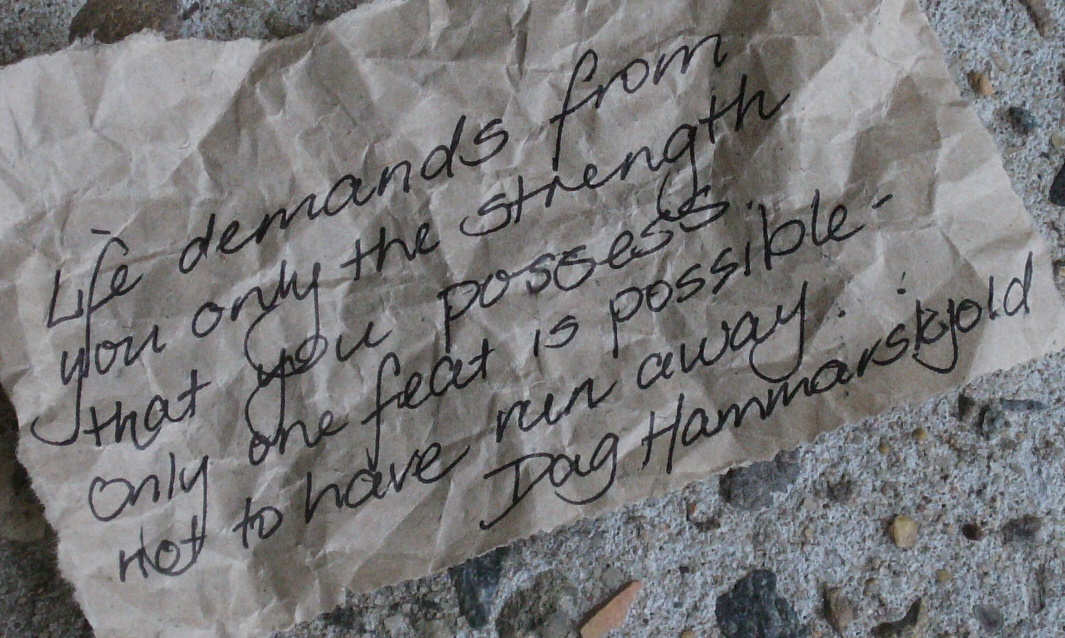 Life demands from
you only the strength
that you possess.
Only one feat is possible -
not to have run away.
Dag Hammarskjold